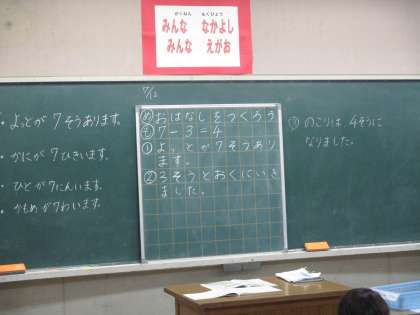 がくねん もくひょう
みんな なかよし
みんな えがお
7/12
・よっとが 7そうあります。
・かにが7ひきいます。
・ひとが7にんいます。
・かもめが7わいます。
め おはなしをつくろう
も 7-3=4
① よっとが7そうあり
ます。
② 3そうとおくにいき
ました。
③ のこりは 4そうに
なりました。